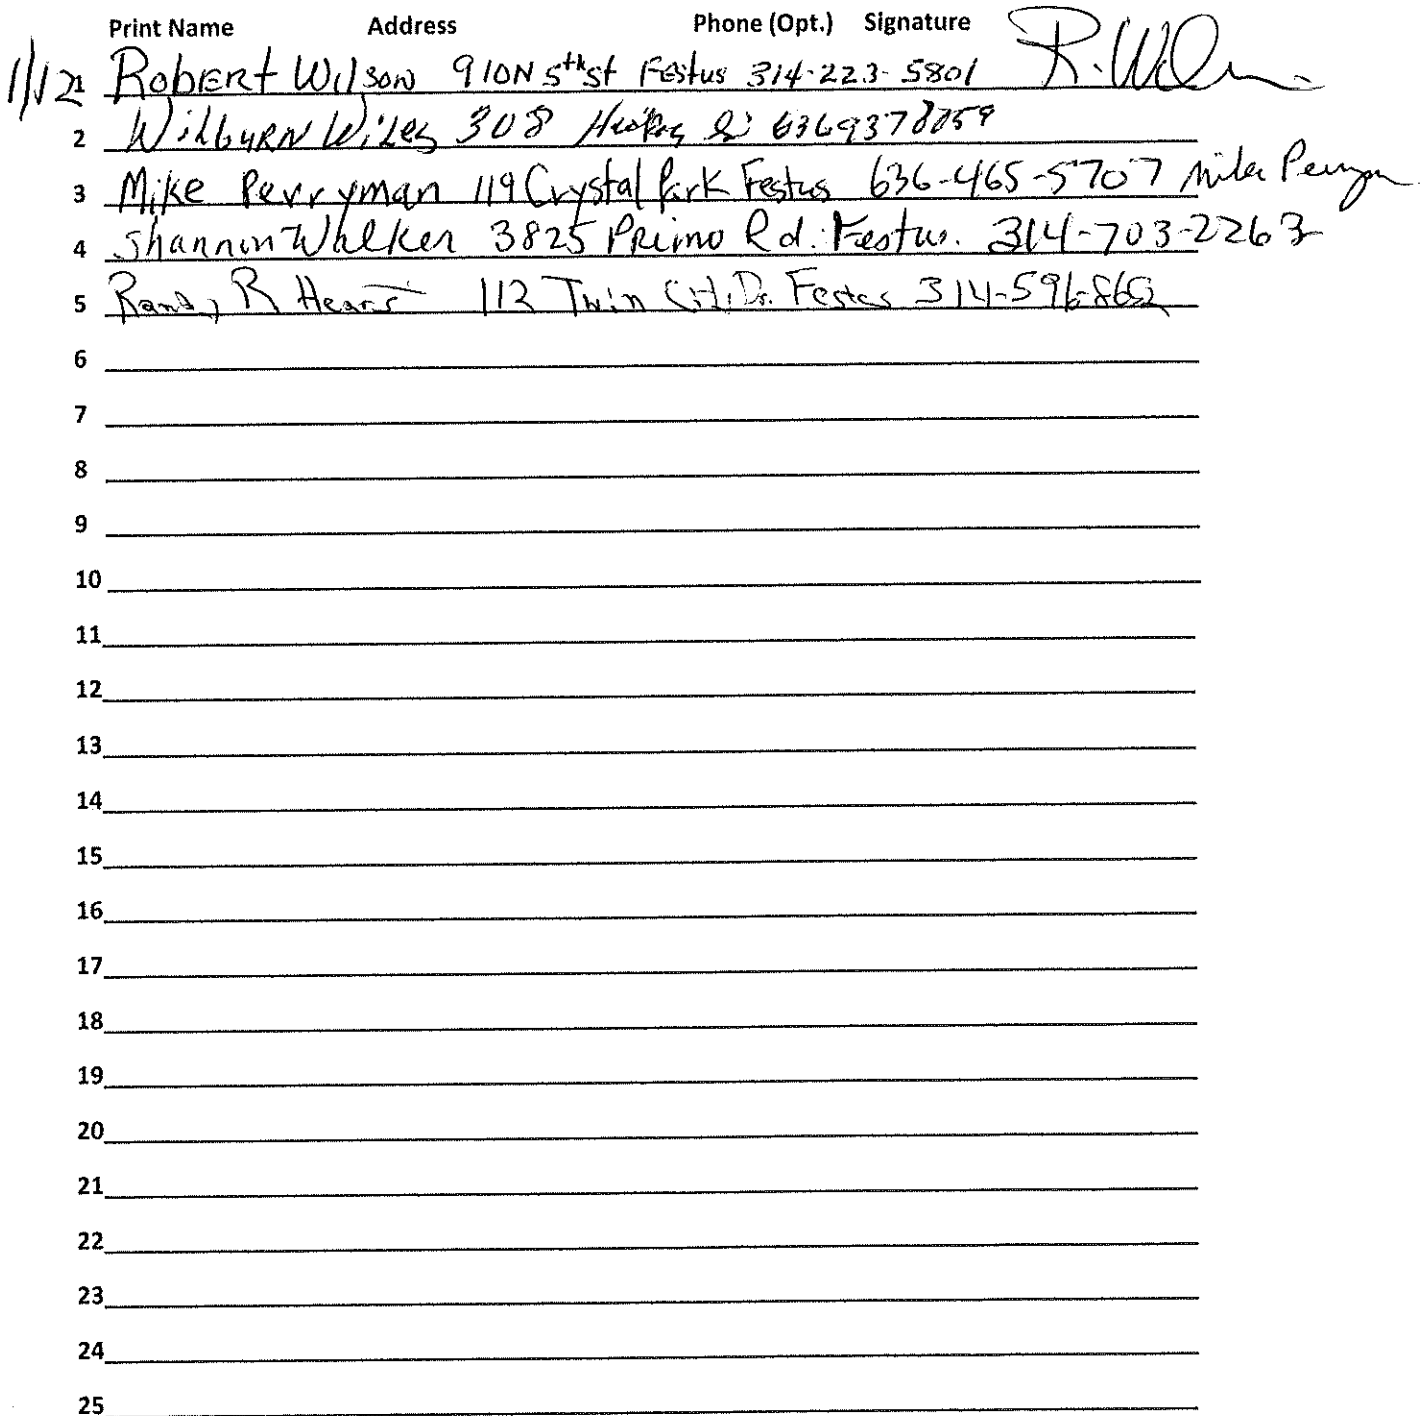 Print Name Address Phone (Opt.) Signature
1/12 1 RobERt Wilson 910N 5th St Festus 314-223-5801 R. Wil
2 WilbuRN Wiles 308 6369378059
3 Mike Perryman 119 Crystal Park Festus 636-465-5707 Mike Perryman
4 Shannon Walker 3825 PRimo Rd. Festus. 314-703-2263
5 Randy R 112 Twin City Dr. Festus 314-596-8652
6
7
8
9
10
11
12
13
14
15
16
17
18
19
20
21
22
23
24
25